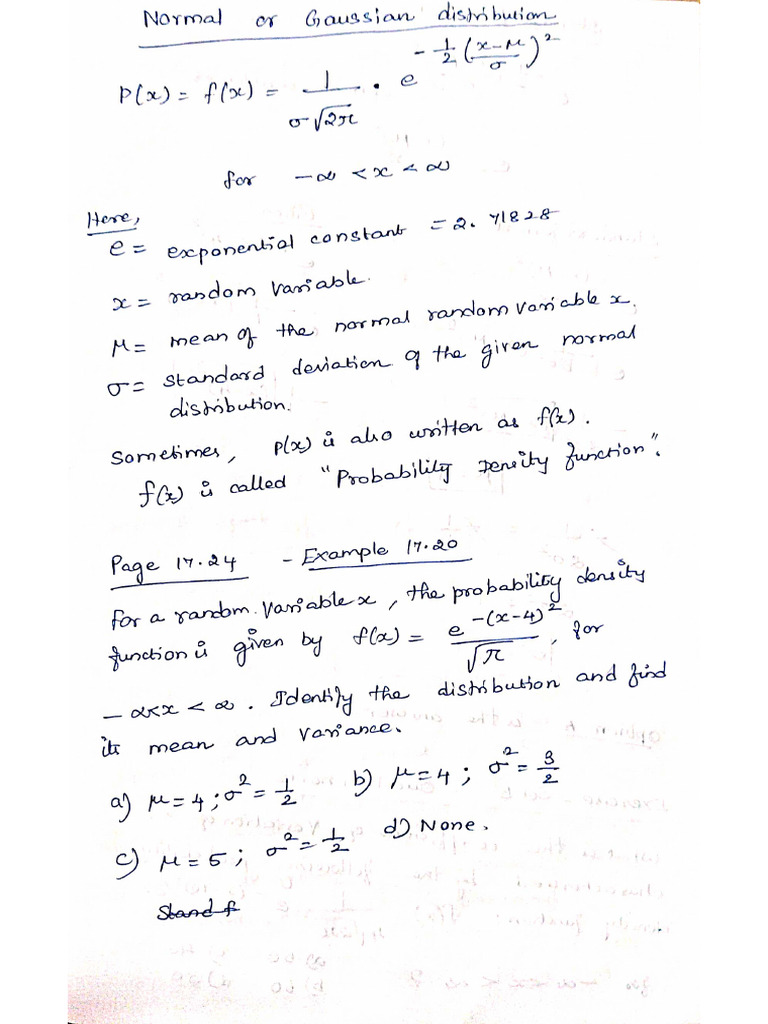 Normal or Gaussian distribution
P(x) = f(x) = 1/(σ√2π) · e^(-1/2 ((x-μ)/σ)^2)
for -∞ < x < ∞
Here,
e = exponential constant = 2.71828
x = random variable.
μ = mean of the normal random variable x.
σ = standard deviation of the given normal
distribution.
Sometimes, P(x) is also written as f(x).
f(x) is called "Probability Density function".
Page 17.24 - Example 17.20
For a random variable x, the probability density
function is given by f(x) = e^(-(x-4)^2)/√π, for
-∞<x<∞. Identify the distribution and find
its mean and variance.
a) μ = 4 ; σ^2 = 1/2 b) μ = 4 ; σ^2 = 3/2
c) μ = 5 ; σ^2 = 1/2 d) None.